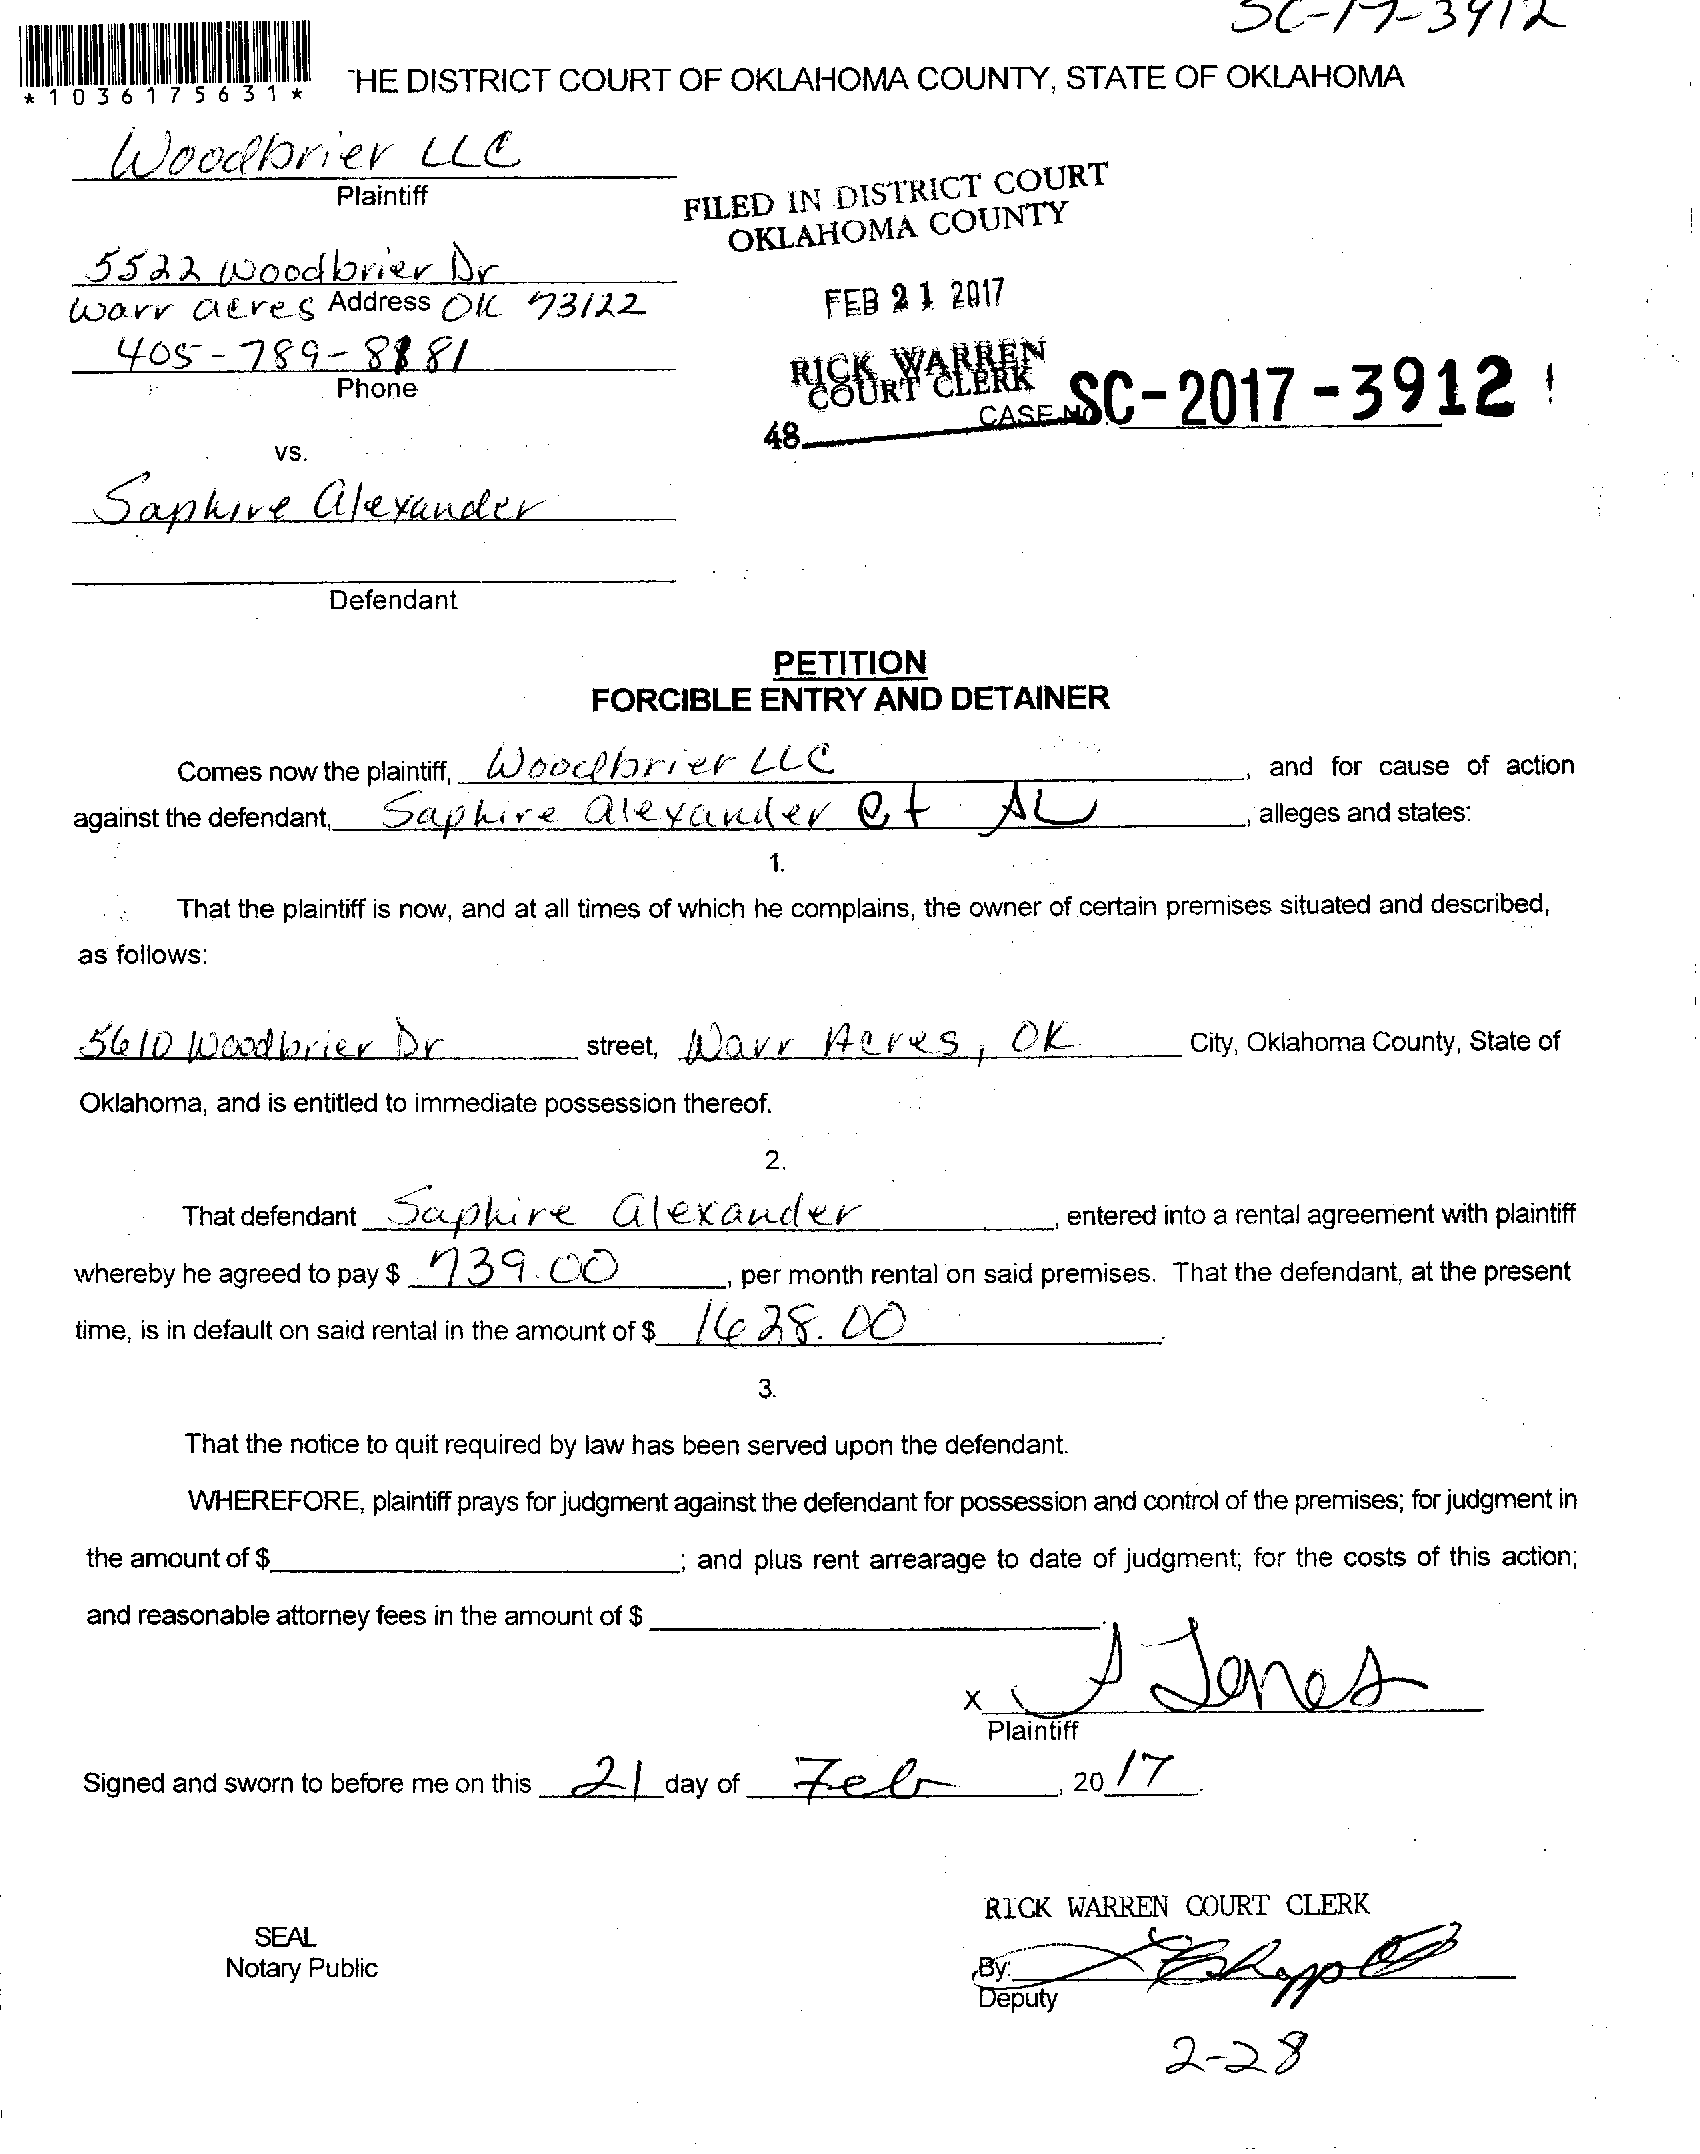 SC-17-3912
*1036175631*
THE DISTRICT COURT OF OKLAHOMA COUNTY, STATE OF OKLAHOMA
Woodbrier LLC
Plaintiff
FILED IN DISTRICT COURT
OKLAHOMA COUNTY
5522 Woodbrier Dr
Warr Acres Address OK 73122
FEB 21 2017
405-789-8881
Phone
RICK WARREN
COURT CLERK
CASE NO. SC-2017-3912
48
vs.
Saphire Alexander
Defendant
PETITION
FORCIBLE ENTRY AND DETAINER
Comes now the plaintiff, Woodbrier LLC, and for cause of action
against the defendant, Saphire Alexander et AL, alleges and states:
1.
That the plaintiff is now, and at all times of which he complains, the owner of certain premises situated and described,
as follows:
5610 Woodbrier Dr street, Warr Acres, OK City, Oklahoma County, State of
Oklahoma, and is entitled to immediate possession thereof.
2.
That defendant Saphire Alexander, entered into a rental agreement with plaintiff
whereby he agreed to pay $ 739.00, per month rental on said premises. That the defendant, at the present
time, is in default on said rental in the amount of $ 1628.00.
3.
That the notice to quit required by law has been served upon the defendant.
WHEREFORE, plaintiff prays for judgment against the defendant for possession and control of the premises; for judgment in
the amount of $ ; and plus rent arrearage to date of judgment; for the costs of this action;
and reasonable attorney fees in the amount of $ .
x S Jones
Plaintiff
Signed and sworn to before me on this 21 day of Feb, 2017.
RICK WARREN COURT CLERK
SEAL
Notary Public
By:
Deputy
2-28